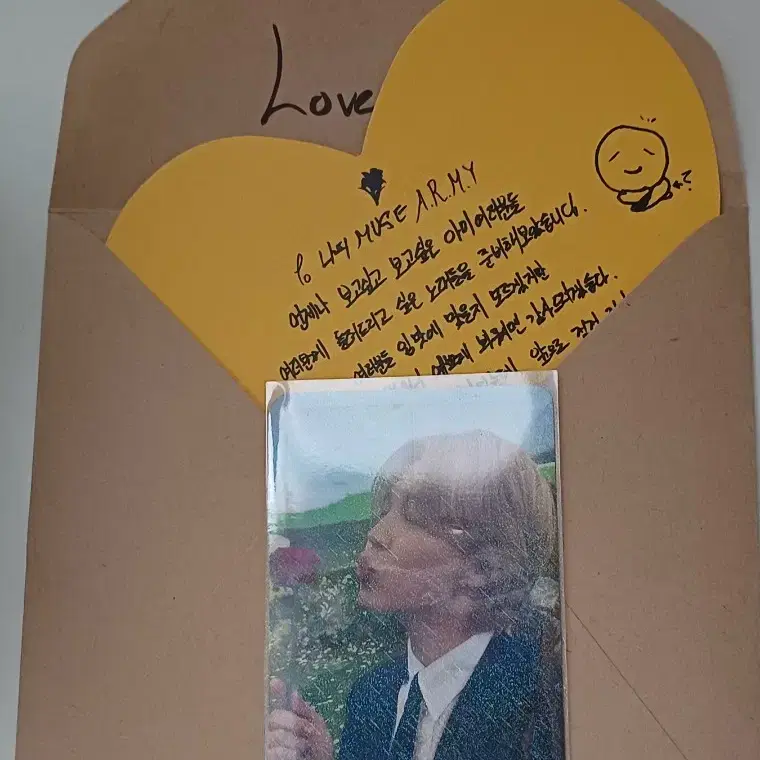 Love
To 나의 MUSE A.R.M.Y
언제나 보고싶고 보고싶은 아미여러분들
여러분께 들려드리고 싶은 노래들을 준비해보았습니다.
여러분들 입맛에 맞을지 모르겠지만
예쁘게 봐주시면 감사하겠습니다.
앞으로